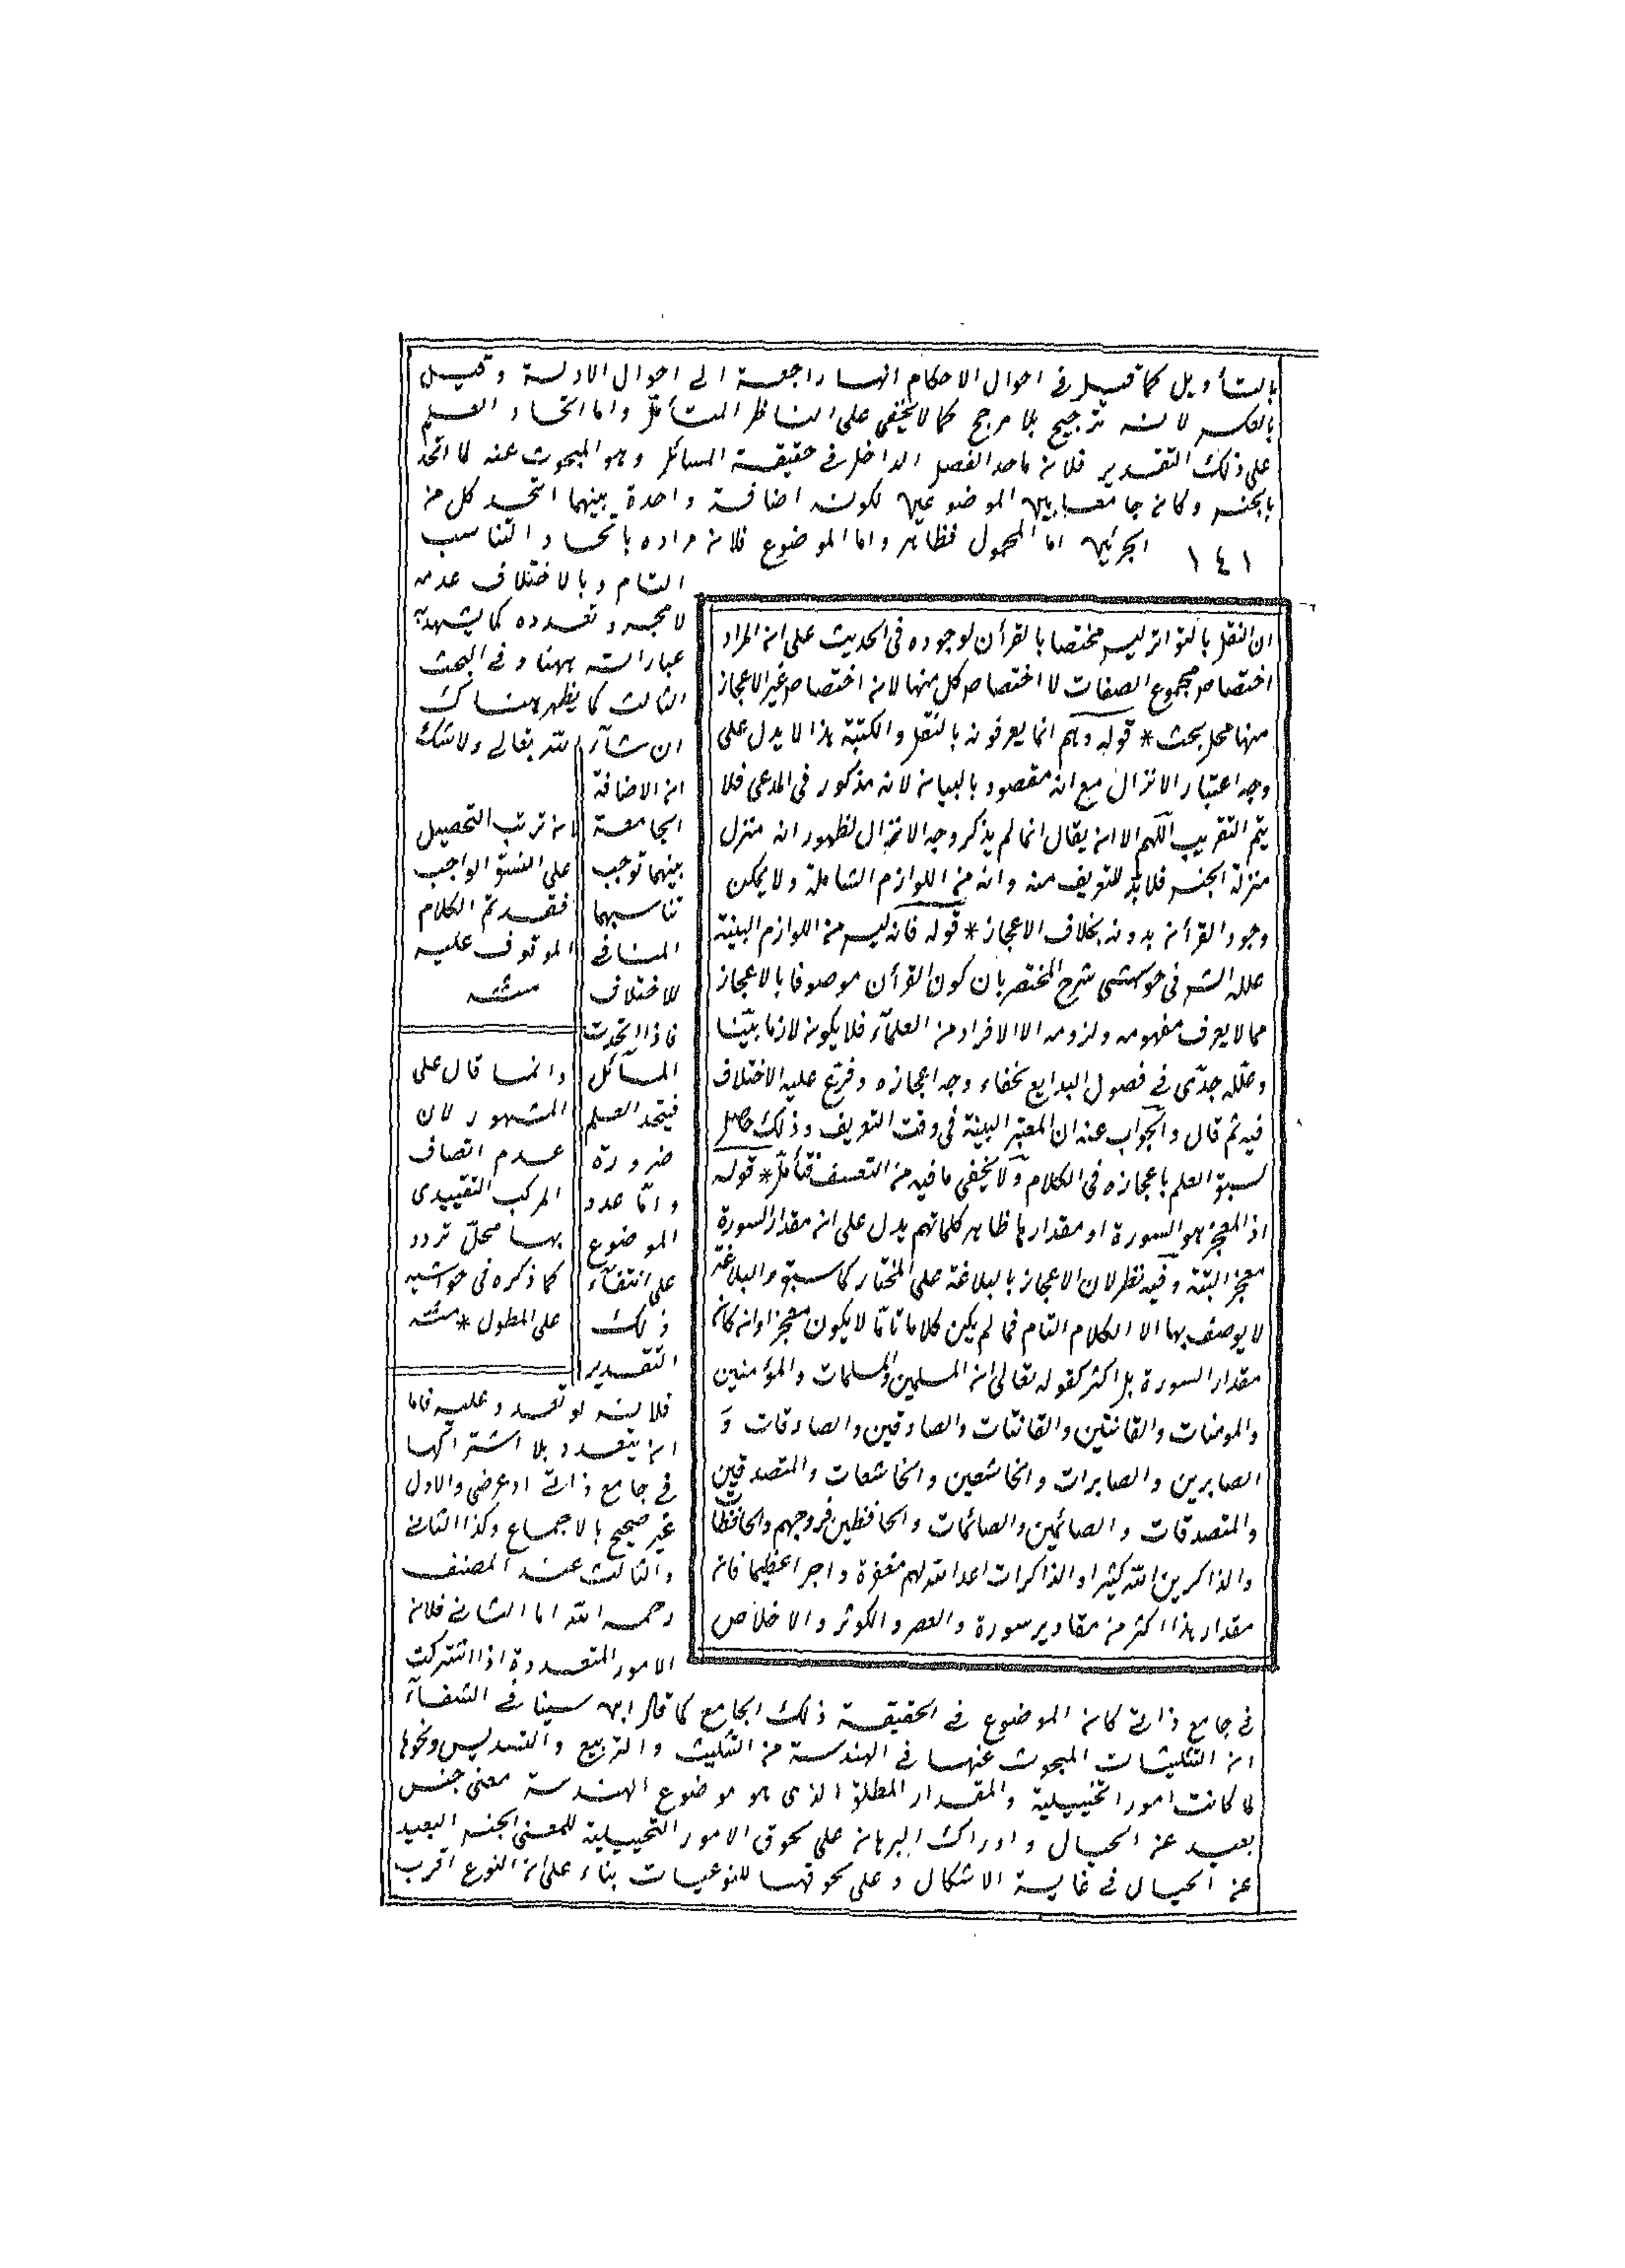 بالتأويل كما قيل فى احوال الاحكام انها راجعة الى احوال الادلة وقيل
بالعكس لانه ترجيح بلا مرجح كما لا يخفى على الناظر المتأمل واما اتحاد العلم
على ذلك التقدير فلان ماصدق الفصل الداخل فى حقيقة المسائل وهو المبحوث عنه لما اتحد
بالجنس وكان جامعا بين الموضوعين لكونه اضافة واحدة بينهما اتحد كل من
١٤١ الجزئين اما المحمول فظاهر واما الموضوع فلان مراده باتحاد التناسب
التام وبالاختلاف عدمه
لا مجرد تعدده كما يشهد به
عباراته ههنا وفى البحث
الثالث كما يظهر هناك
ان شآء الله تعالى ولا شك
ان الاضافة
الجامعة
بينهما توجب
تناسبهما
المنافى
للاختلاف
فاذا اتحدت
المسآئل
فيتحد العلم
ضرورة
واما عدد
الموضوع
على انتفآء
ذلك
التقدير
فلانه لو تعدد وعليه فاما
ان يتعدد بلا اشتراكها
فى جامع ذاتى او عرضى والاول
غير صحيح بالاجماع وكذا الثانى
والثالث عند المصنف
رحمه الله اما الثانى فلان
الامور المتعددة اذا اشتركت
فى جامع ذاتى كان الموضوع فى الحقيقة ذلك الجامع كما قال ابن سينا فى الشفآء
ان التثليثات المبحوث عنها فى الهندسة من التثليث والتربيع والتسديس ونحوها
لما كانت امورا تخييلية والمقدار المطلق الذى هو موضوع الهندسة معنى جنس
بعيد عن الخيال وادراك البرهان على لحوق الامور التخييلية للمعنى الجنس البعيد
عن الخيال فى غاية الاشكال وعلى لحوقها للنوعيات بناء على ان النوع اقرب
لان ترتب التحصيل
على النسق الواجب
فقد تم الكلام
الموقوف عليه
منه
وانما قال على
المشهور لان
عدم اتصاف
المركب التقييدى
بها محل تردد
كما ذكره فى حواشيه
على المطول * منه
ان النقل بالتواتر ليس مختصا بالقرأن لوجوده فى الحديث على ان المراد
اختصاص مجموع الصفات لا اختصاص كل منها لان اختصاص غير الاعجاز
منها محل بحث * قوله وهم انما يعرفونه بالنقل والكتبة هذا لا يدل على
وجه اعتبار الانزال مع انه مقصود بالبيان لانه مذكور فى المدعى فلا
يتم التقريب اللهم الا ان يقال انما لم يذكر وجه الانزال لظهور انه منزل
منزلة الجنس فلا بد للتعريف منه وانه من اللوازم الشاملة ولا يمكن
وجود القرأن بدونه بخلاف الاعجاز * قوله فانه ليس من اللوازم البينة
علله الش فى حواشى شرح المختصر بان كون القرأن موصوفا بالاعجاز
مما لا يعرف مفهومه ولزومه الا الافراد من العلمآء فلا يكون لازما بينا
وعلله جدى فى فصول البدايع بخفاء وجه اعجازه وفرع عليه الاختلاف
فيه ثم قال والجواب عنه ان المعتبر البينة فى وقت التعريف وذلك حاصل
لسبق العلم باعجازه فى الكلام ولا يخفى ما فيه من التعسف فتأمل * قوله
اذ المعجز هو السورة او مقدارها ظاهر كلماتهم يدل على ان مقدار السورة
معجز البتة وفيه نظر لان الاعجاز بالبلاغة على المختار كما سبق والبلاغة
لا يوصف بها الا الكلام التام فما لم يكن كلاما تاما لا يكون معجزا وان كان
مقدار السورة بل اكثر كقوله تعالى ان المسلمين والمسلمات والمؤمنين
والمومنات والقانتين والقانتات والصادقين والصادقات و
الصابرين والصابرات والخاشعين والخاشعات والمتصدقين
والمتصدقات والصائمين والصائمات والحافظين فروجهم والحافظات
والذاكرين الله كثيرا والذاكرات اعد الله لهم مغفرة واجرا عظيما فان
مقدار هذا اكثر من مقادير سورة والعصر والكوثر والاخلاص